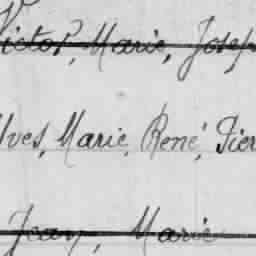 Victor, Marie, Josep
Yves, Marie, René, Pier
Jean, Marie